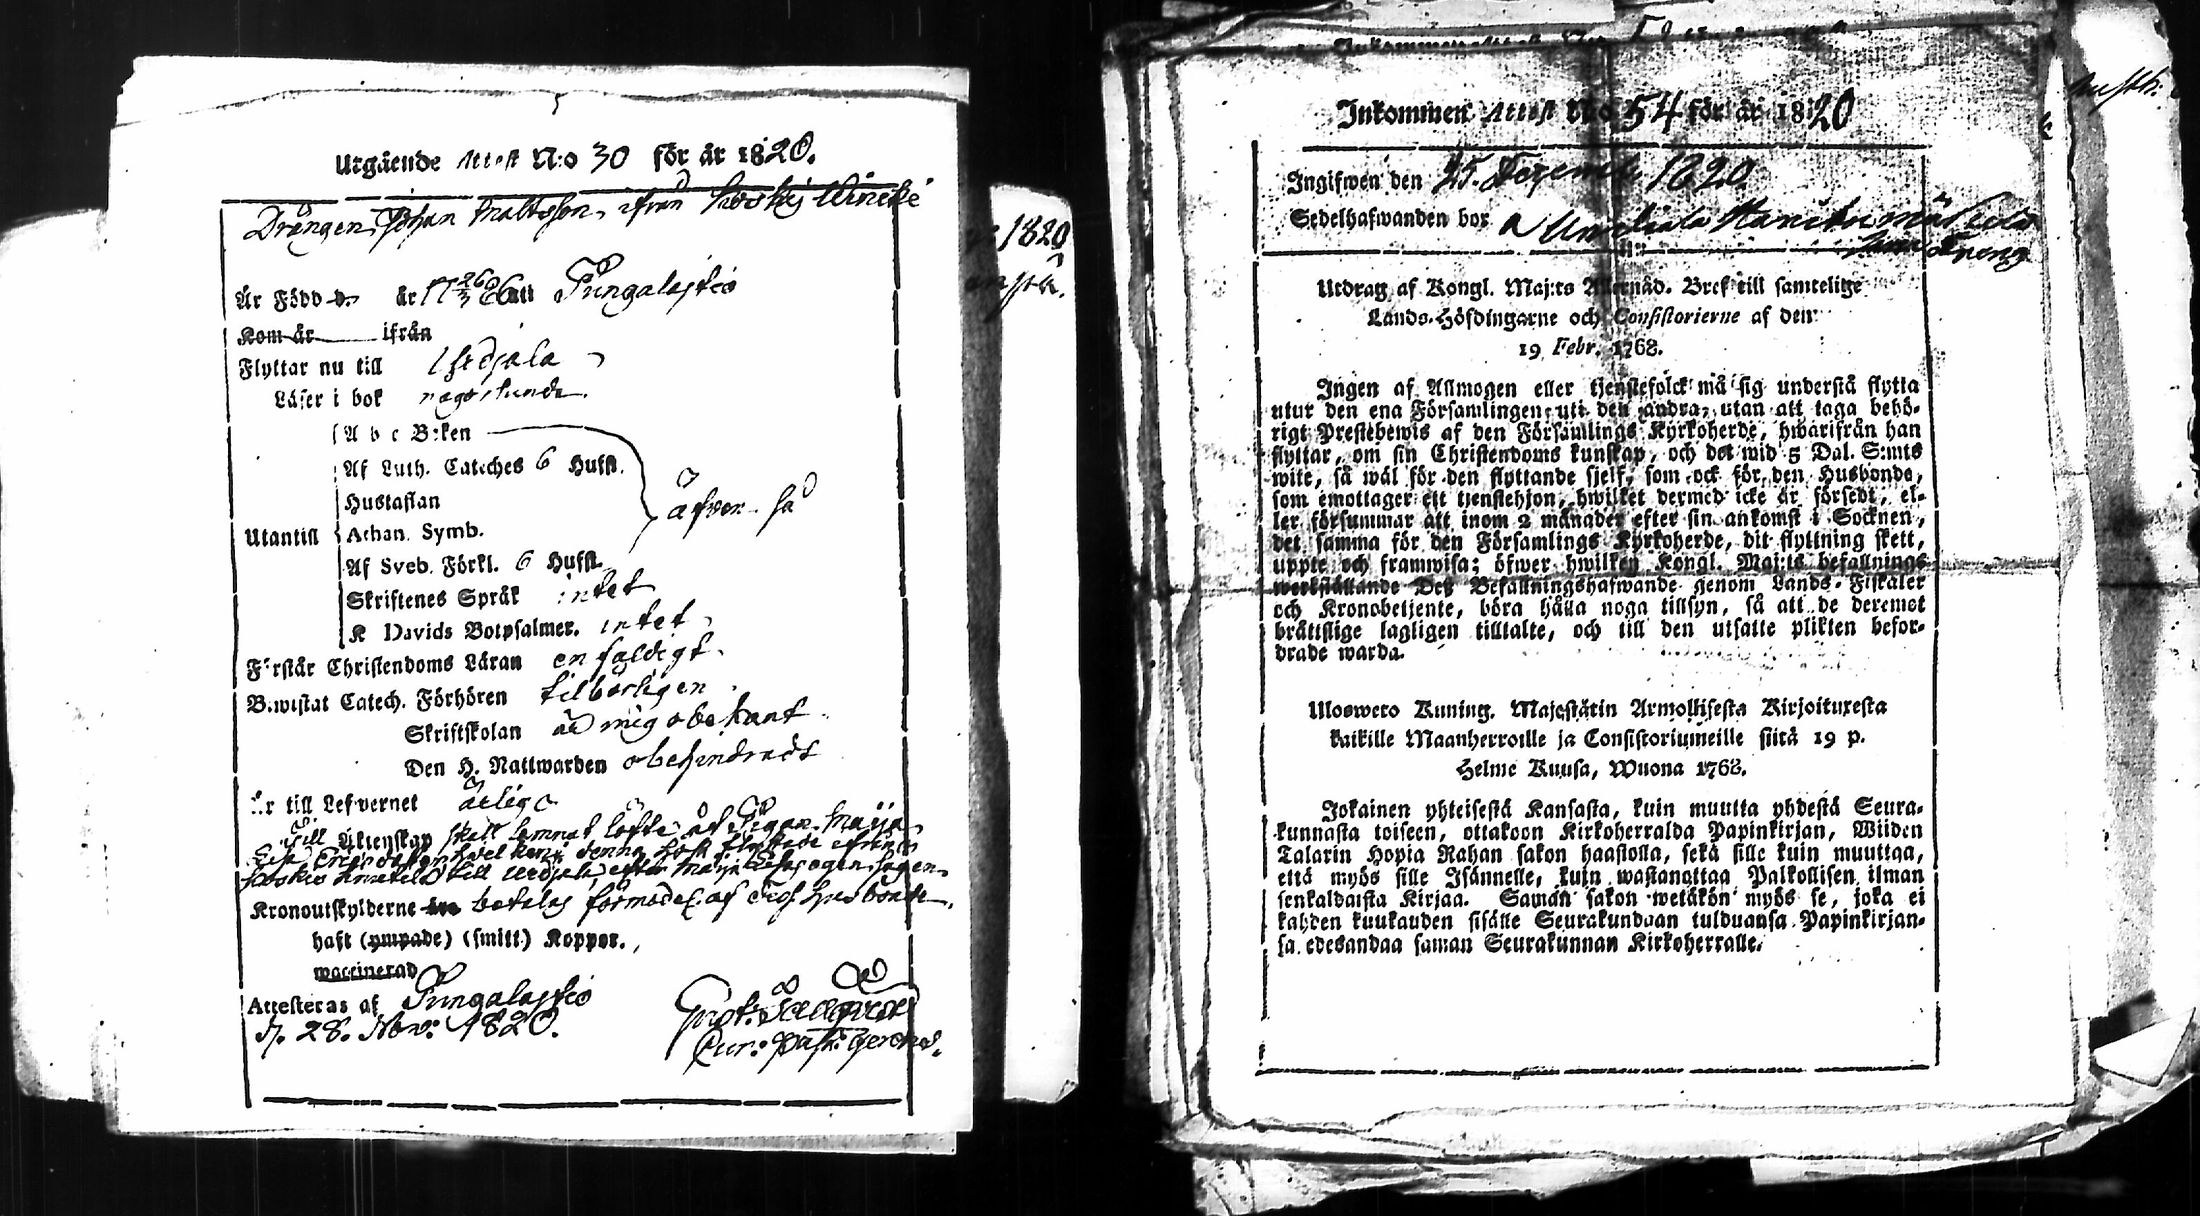 Utgående Attest N:o 30 för år 1820.
Drängen Johan Mattsson, ifrån
Är Född år 17 26/3 86 uti Pungalaitio
Kom år ifrån
Flyttar nu till Urdjala
Läser i bok någorlunda
A b c Boken
Af Luth. Cateches 6 Hufst.
Hustaflan
äfven så
Utantill Athan. Symb.
Af Sveb. Förkl. 6 Hufst.
Skriftenes Språk intet
K Davids Botpsalmer. intet
Förstår Christendoms Läran enfaldigt
Bewistat Catech. Förhören tilbörligen
Skriftskolan är mig obekant
Den H. Nattwarden obehindradt
Är till Lefvernet ärlig
Till Äktenskap skall lemnat löfte åt Pigan Maija
denna höst ifrån
till Urdjala, efter Maija egen sägen
Kronoutskylderne betalas af husbonde
haft (ympade) (smitt) Koppor.
waccinerad
Attesteras af Pungalaitio
d. 28. Nov: 1820.
Cur: Past:
1820
Inkommen Attest N:o 54 för år 1820
Ingifwen den 25. Dezemb 1820.
Sedelhafwanden bor
Utdrag af Kongl. Maj:ts Allernåd. Bref till samtelige
Lands-Höfdingarne och Consistorierne af den
19 Febr. 1768.
Ingen af Allmogen eller tjenstefolck må sig understå flytta
utur den ena Församlingen uti den andra, utan att taga behö-
rigt Prestebewis af den Församlings Kyrkoherde, hwarifrån han
flyttar, om sin Christendoms kunskap, och det wid 5 Dal. S:mts
wite, så wäl för den flyttande sjelf, som ock för den Husbonde,
som emottager ett tjenstehjon, hwilket dermed icke är försedt, el-
ler försummar att inom 2 månader efter sin ankomst i Socknen,
det samma för den Församlings Kyrkoherde, dit flyttning skett,
uppte och framwisa; öfwer hwilken Kongl. Maj:ts befallnings
werkställande Deß Befallningshafwande genom Lands-Fiskaler
och Kronobetjente, böra hålla noga tillsyn, så att de deremot
bråttslige lagligen tilltalte, och till den utsatte plikten befor-
drade warda.
Uloswero Kuning. Majestätin Armollisesta Kirjoituxesta
kaikille Maanherroille ja Consistoriumeille siitä 19 p.
Helme Kuusa, Wuona 1768.
Jokainen yhteisestä Kansasta, kuin muutta yhdestä Seura-
kunnasta toiseen, ottakoon Kirkoherralda Papinkirjan, Wiiden
Talarin Hopia Rahan sakon haastolla, sekä sille kuin muuttaa,
että myös sille Isännelle, kuin wastanottaa Palkollisen ilman
senkaldaista Kirjaa. Samän sakon wetäkön myös se, joka ei
kahden kuukauden sisälle Seurakundaan tulduansa Papinkirjan-
sa edesandaa saman Seurakunnan Kirkoherralle.